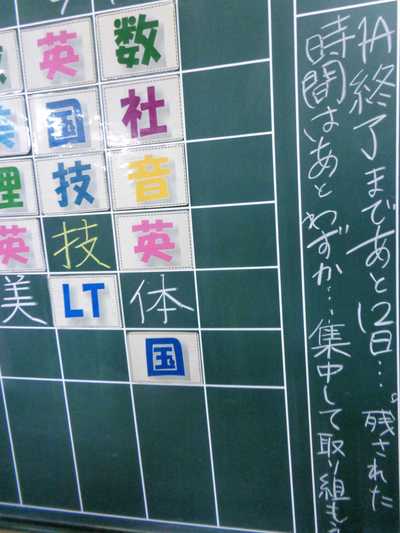 1A終了まであと12日…。残された
時間はあとわずか…集中して取り組もう
数
社
音
英
体
国
英
国
技
技
LT
理
英
美